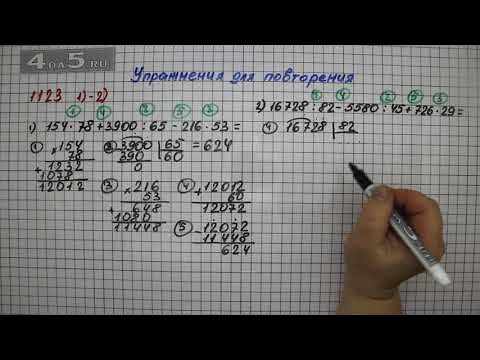 4 DA 5.RU
Упражнения для повторения
1123 1)-2)
① ④ ② ⑤ ③
1) 154·78+3900:65-216·53=
=624
① ×154
78
+1232
1078
12012
② 3900 | 65
390 | 60
0
③ ×216
53
+648
1080
11448
④ +12012
60
12072
⑤ -12072
11448
624
① ④ ② ⑤ ③
2) 16728:82-5580:45+726·29=
① 16728 | 82